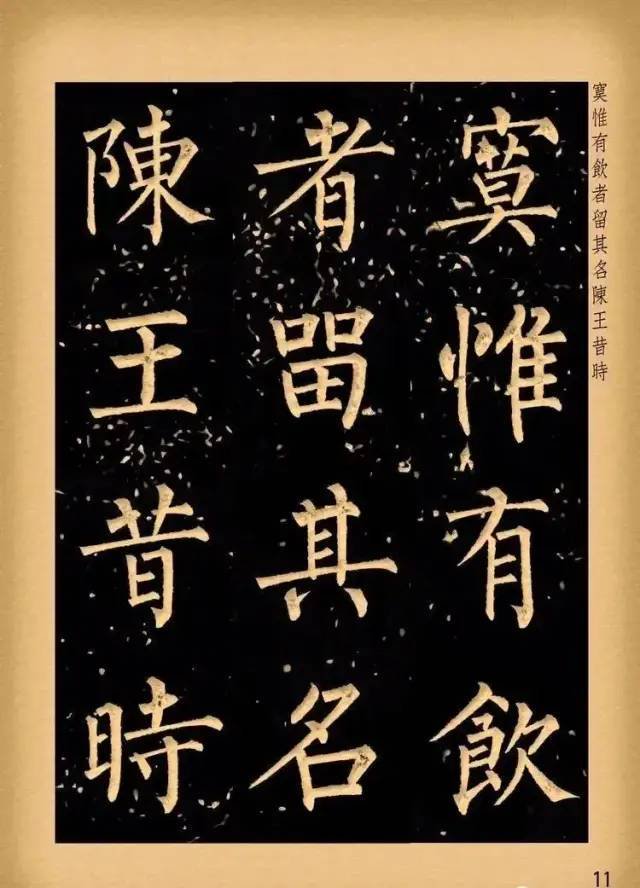 寞惟有飲
者留其名
陳王昔時
寞惟有飲者留其名陳王昔時
11